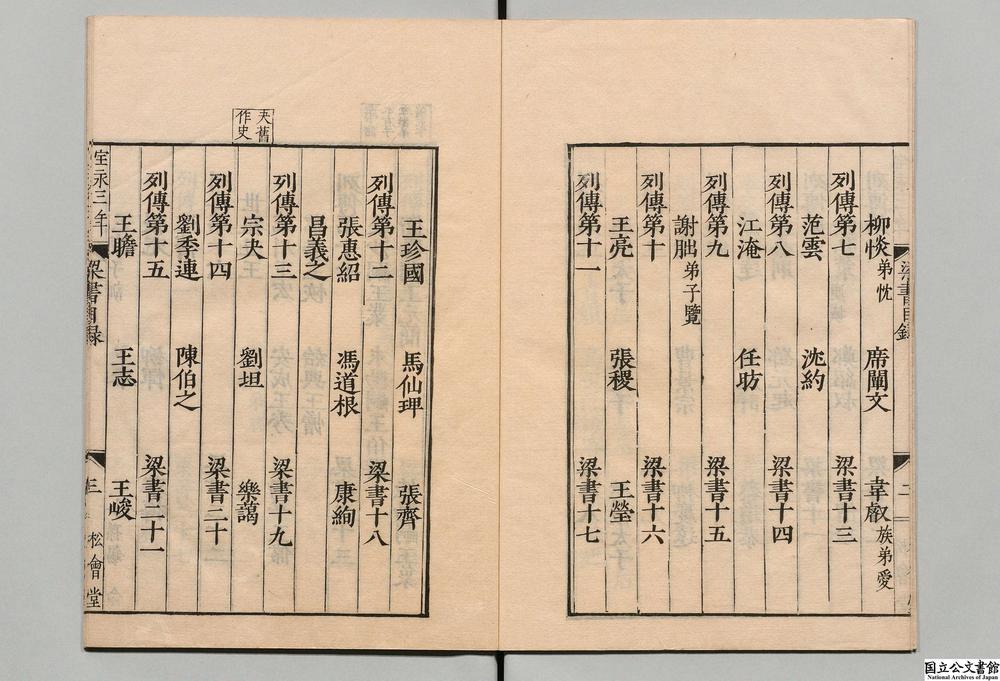 柳惔弟忱 席闡文 韋叡族弟愛
列傳第七 梁書十三
范雲 沈約
列傳第八 梁書十四
江淹 任昉
列傳第九 梁書十五
謝朏弟子覽
列傳第十 梁書十六
王亮 張稷 王瑩
列傳第十一 梁書十七
梁書目錄 二
王珍國 馬仙琕 張齊
列傳第十二 梁書十八
張惠紹 馮道根 康絢
昌義之
列傳第十三 梁書十九
宗夬 劉坦 樂藹
夬舊
作史
列傳第十四 梁書二十
劉季連 陳伯之
列傳第十五 梁書二十一
王瞻 王志 王峻
宝永三年 梁書目録 三 松會堂
国立公文書館
National Archives of Japan